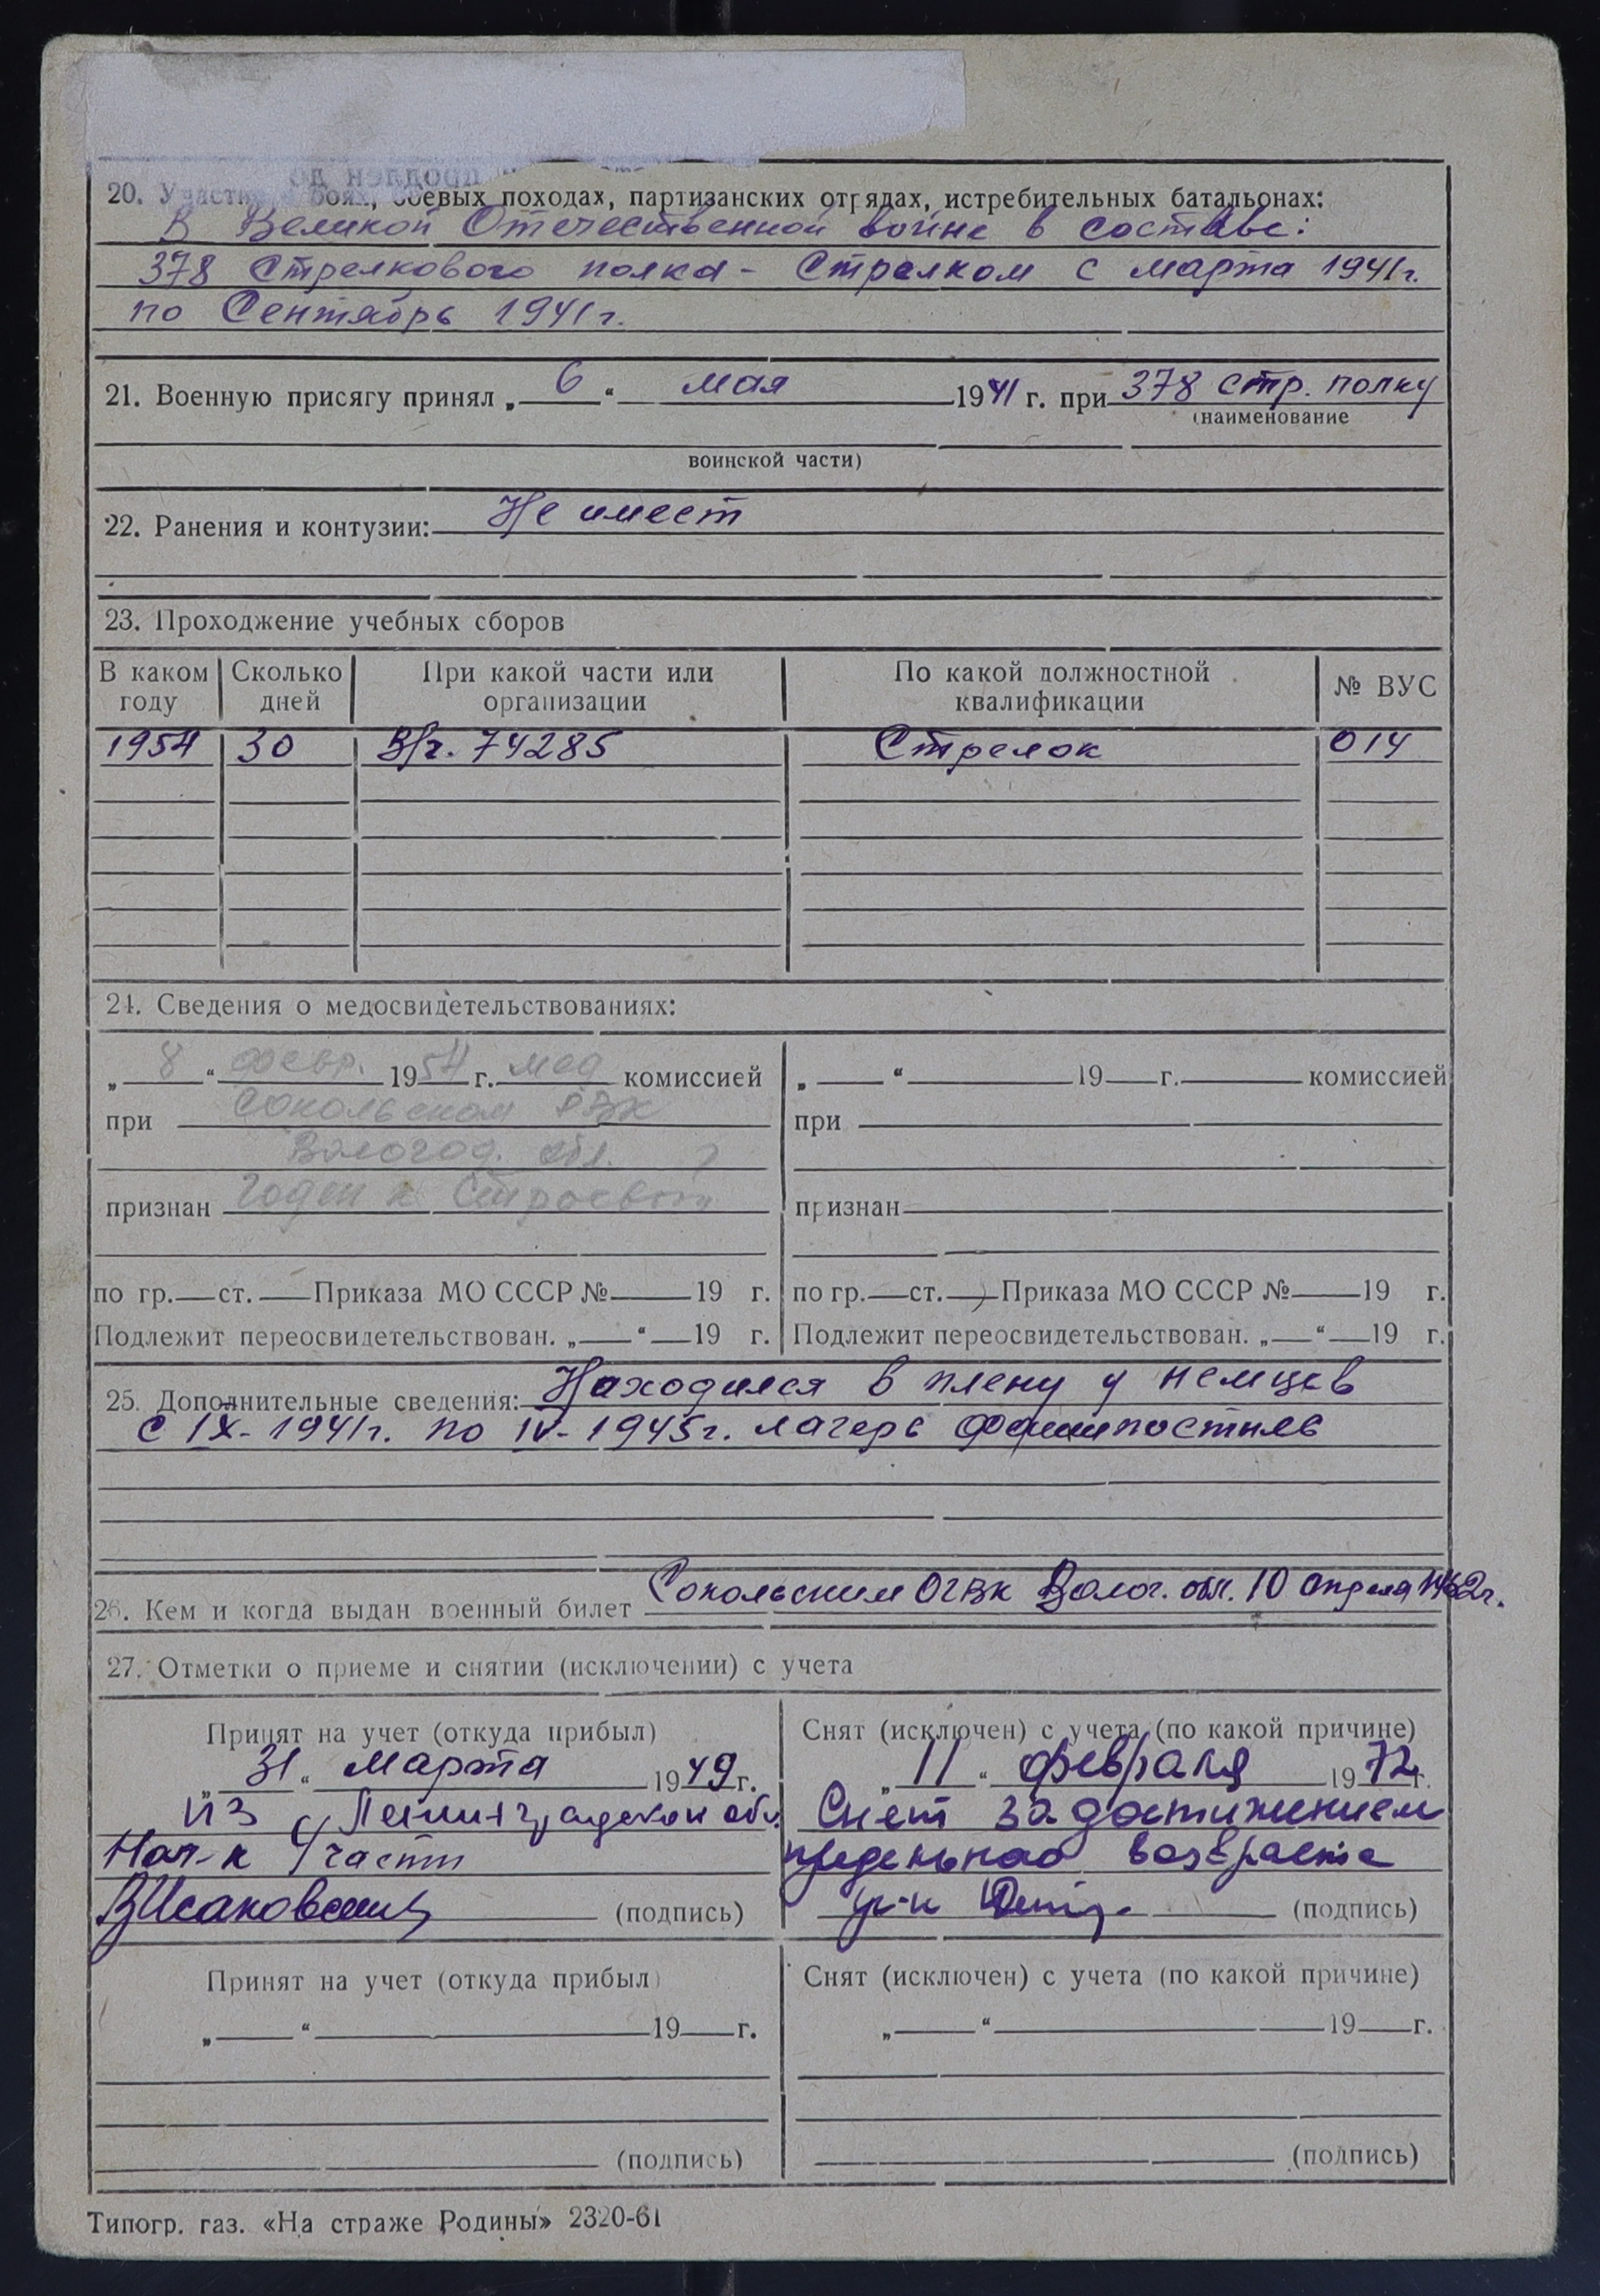 20. Участие в боях, боевых походах, партизанских отрядах, истребительных батальонах:
В Великой Отечественной войне в составе:
378 Стрелкового полка - Стрелком с марта 1941г.
по Сентябрь 1941г.
21. Военную присягу принял „ 6 “ мая 1941 г. при 378 стр. полку
(наименование
воинской части)
22. Ранения и контузии: Не имеет
23. Прохождение учебных сборов
В каком году Сколько дней При какой части или организации По какой должностной квалификации № ВУС
1954 30 В/ч. 74285 Стрелок 014
24. Сведения о медосвидетельствованиях:
„ 8 “ февр. 1954 г. мед комиссией
при Сокольском РВК
Вологод. обл.
признан годен к строевой
по гр. ст. Приказа МО СССР № 19 г.
Подлежит переосвидетельствован. „ “ 19 г.
„ “ 19 г. комиссией
при
признан
по гр. ст. Приказа МО СССР № 19 г.
Подлежит переосвидетельствован. „ “ 19 г.
25. Дополнительные сведения: Находился в плену у немцев
с IX-1941г. по IV-1945г. лагерь
26. Кем и когда выдан военный билет Сокольским ОГВК Волог. обл. 10 апреля 1962г.
27. Отметки о приеме и снятии (исключении) с учета
Принят на учет (откуда прибыл)
„ 31 “ марта 1949 г.
из Ленинградской обл.
Нач-к части
ВИсаковский (подпись)
Снят (исключен) с учета (по какой причине)
„ 11 “ февраля 1972 г.
Снят за достижением
предельного возраста
(подпись)
Принят на учет (откуда прибыл)
„ “ 19 г.
(подпись)
Снят (исключен) с учета (по какой причине)
„ “ 19 г.
(подпись)
Типогр. газ. «На страже Родины» 2320-61